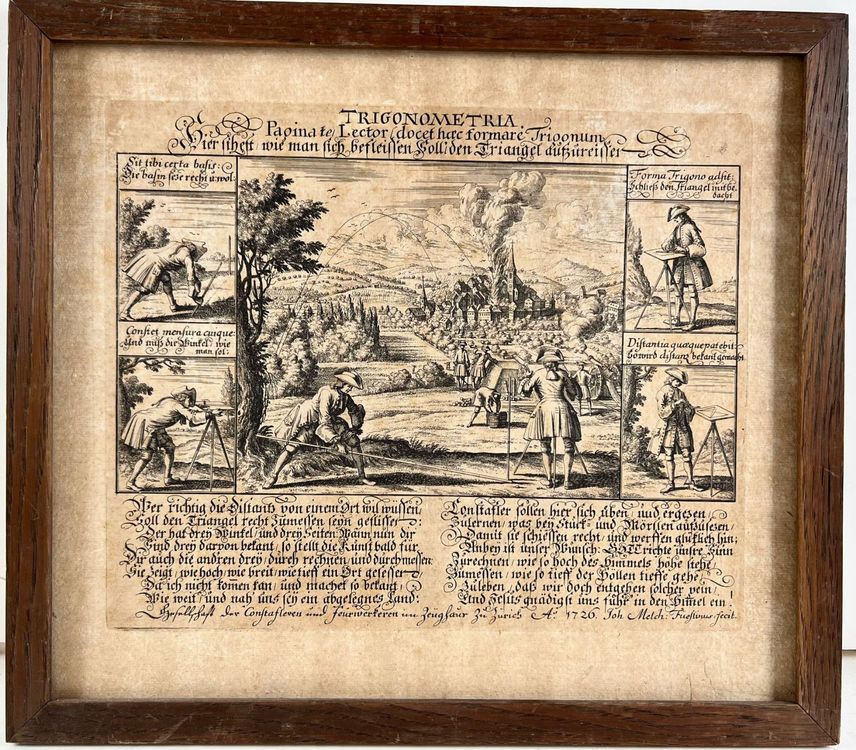 TRIGONOMETRIA.
Pagina te, Lector, docet hæc formare Trigonum
Hier sihest, wie man sich befleissen Soll, den Triangel aufzureissen
Sit tibi certa basis:
Die basin seze recht u: wol:
Constet mensura cuique:
Und miß die Winkel, wie
man sol:
Forma Trigono adsit:
Schließ den Triangel mit be,,
dacht
Distantia quæque patebit:
So wird distanz bekant gemacht
Wer richtig die Distantz von einem Ort wil wüssen/
Soll den Triangel recht Zumessen seyn geflissen:
Der hat drey Winkel/ und drey Seiten: Wann nun dir
Sind drey darvon bekant/ so stellt die Kunst bald für
Dir auch die andren drey/ durch rechnen/ und durchmessen:
Sie Zeigt/ wie hoch/ wie breit/ wie tieff ein Ort gesessen/
Der ich nicht kommen kan/ und machet so bekant/
Wie weit/ und nah uns sey ein abgelegnes Land:
Constafler sollen hier sich üben/ und ergezen/
Zulernen/ was bey Stuck- und Mörslen aufzusezen/
Damit sie schiessen recht/ und werffen glüklich hin;
Anbey ist unser Wunsch: GOTT richte unsre Sinn
Zurechnen/ wie so hoch des Himmels höhe stehe/
Zumessen/ wie so tieff der Höllen tieffe gehe/
Zuleben/ daß wir doch entgehen solcher pein/
Und JEsus gnädigst uns führ in den Himmel ein!
Gesellschaft der Constafleren und Feurwerkeren im Zeughaus Zu Zürich A.° 1726. Joh. Melch: Fueslinus fecit.